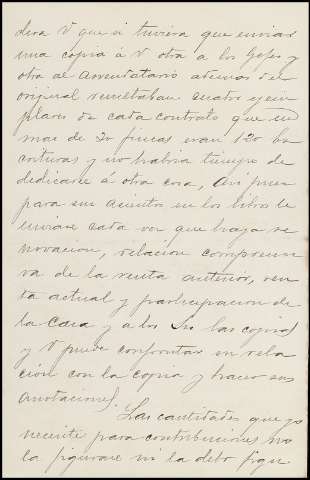 dera V que si tuviera que enviar
una copia á V otra a los Gefes y
otra al Arrendatario ademas del
original resultaban cuatro ejem
plares de cada contrato que en
mas de 30 fincas eran 120 es
crituras y no habria tiempo de
dedicarse á otra cosa, Asi pues
para sus asientos en los libros le
enviaré cada vez que haya re
novacion, relacion comprensi
va de la renta anterior, ren
ta actual y participacion de
la Casa y a los Sres las copias
y V puede confrontar en rela
ción con la copia y hacer sus
anotaciones.
Las cantidades que yo
necesite para contribuciones no
la figurare ni la debo figu